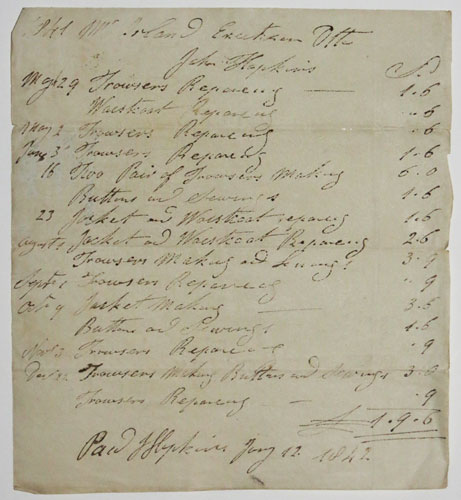 1841 Mr Ireland Dr to
John Hopkins
29 Trowsers Repareing 1.6
Waistcoat Repareing .. 6
May 2 Trowsers Repareing .. 6
Trowsers Repareing 1.6
16 Two Pair of Trowsers Making 6.0
Buttons and Sewings 1.6
23 Jacket and Waistcoat repareing 1.6
August Jacket and Waistcoat Repareing 2.6
Trowsers Making and 3.9
Sept Trowsers Repareing .. 9
Octr 9 Jacket Making 3.6
Buttons and Sewings 1.6
Novr Trowsers Repareing .. 9
Decr Trowsers Making Buttons and Sewings 3.9
Trowsers Repareing .. 9
£ 1.9.6
Paid J Hopkins Jany 12 1842